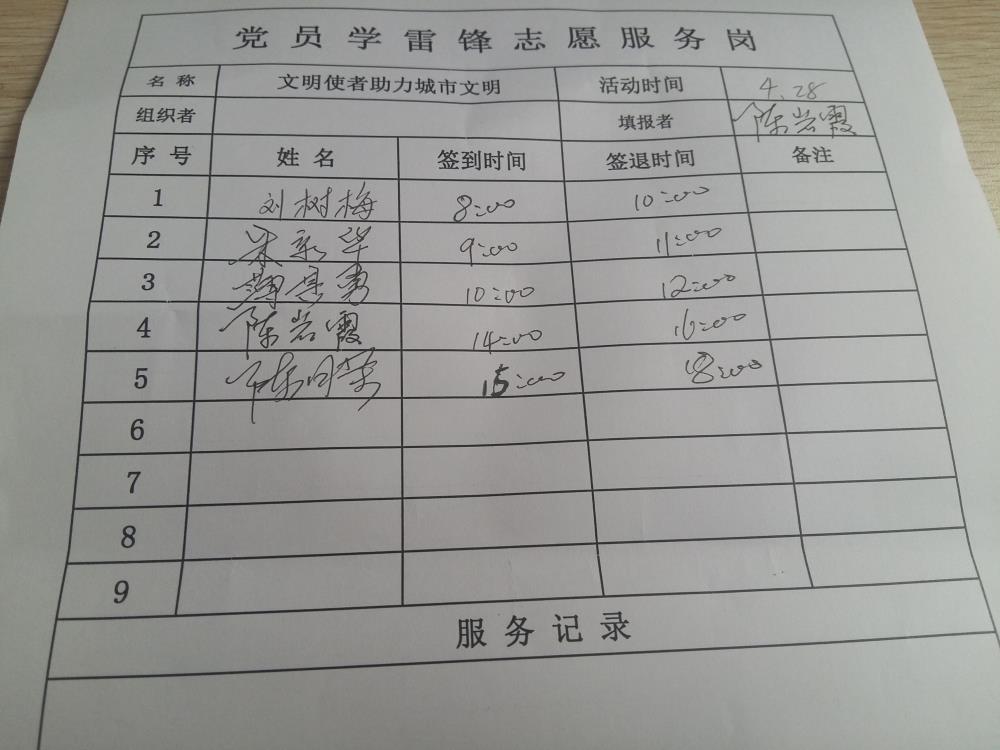 党员学雷锋志愿服务岗
名称 文明使者助力城市文明 活动时间 4.28
组织者 填报者 陈岩霞
序号 姓名 签到时间 签退时间 备注
1 刘树梅 8:00 10:00
2 宋永华 9:00 11:00
3 10:00 12:00
4 陈岩霞 14:00 16:00
5 15:00 18:00
6
7
8
9
服务记录